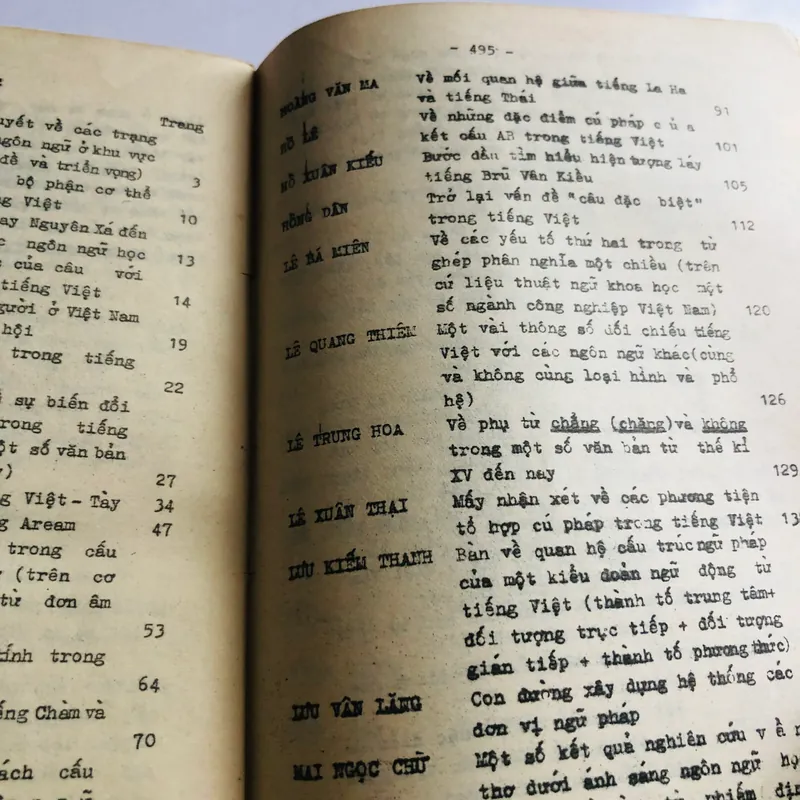 Trang
uyết về các trạng
ngôn ngữ ở khu vực
đề và triển vọng) 3
bộ phận cơ thể
ng Việt 10
ay Nguyên Xá đến
ngôn ngữ học 13
c của câu với
tiếng Việt 14
người ở Việt Nam
hội 19
trong tiếng
22
sự biến đổi
rong tiếng
ột số văn bản
y) 27
ng Việt - Tày 34
ng Aream 47
trong cấu
(trên cơ
từ đơn âm
53
tính trong
64
iếng Chàm và
70
ách cấu
ngữ
- 495 -
HOÀNG VĂN MA Về mối quan hệ giữa tiếng La Ha
và tiếng Thái 91
HỒ LÊ Về những đặc điểm cú pháp của
kết cấu AB trong tiếng Việt 101
HỒ XUÂN KIỂU Bước đầu tìm hiểu hiện tượng láy
tiếng Brũ Vân Kiều 105
HỒNG DÂN Trở lại vấn đề "câu đặc biệt"
trong tiếng Việt 112
LÊ BÁ MIÊN Về các yếu tố thứ hai trong từ
ghép phân nghĩa một chiều (trên
cứ liệu thuật ngữ khoa học một
số ngành công nghiệp Việt Nam) 120
LÊ QUANG THIÊM Một vài thông số đối chiếu tiếng
Việt với các ngôn ngữ khác(cùng
và không cùng loại hình và phổ
hệ) 126
LÊ TRUNG HOA Về phụ từ chẳng (chăng)và không
trong một số văn bản từ thế kỉ
XV đến nay 129
LÊ XUÂN THẠI Mấy nhận xét về các phương tiện
tổ hợp cú pháp trong tiếng Việt
LƯU KIẾM THANH Bàn về quan hệ cấu trúc ngữ pháp
của một kiểu đoản ngữ động từ
tiếng Việt (thành tố trung tâm+
đối tượng trực tiếp + đối tượng
gián tiếp + thành tố phương thức)
LƯU VÂN LĂNG Con đường xây dựng hệ thống các
đơn vị ngữ pháp
MAI NGỌC CHỪ Một số kết quả nghiên cứu vần
thơ dưới ánh sáng ngôn ngữ học